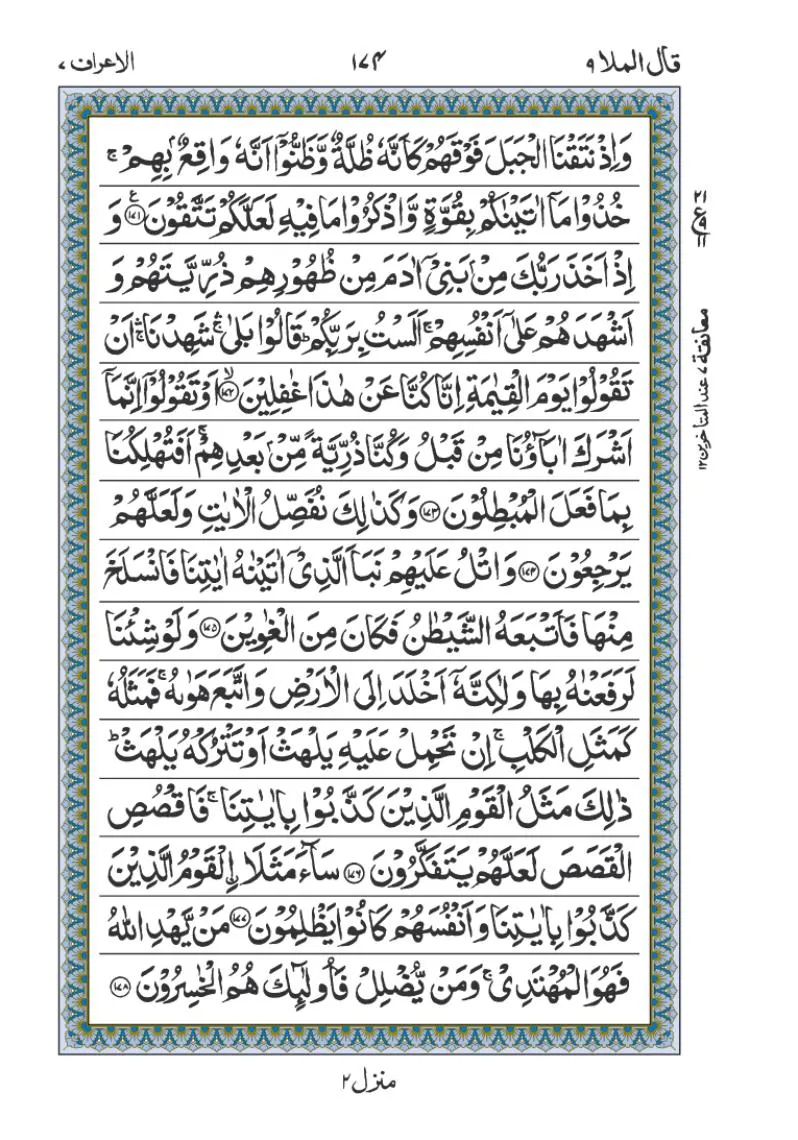 قال الملا ۹
۱۷۴
الاعراف ۷
وَاِذْ نَتَقْنَا الْجَبَلَ فَوْقَهُمْ كَاَنَّهٗ ظُلَّةٌ وَّظَنُّوْۤا اَنَّهٗ وَاقِعٌۢ بِهِمْ ۚ
خُذُوْا مَاۤ اٰتَيْنٰكُمْ بِقُوَّةٍ وَّاذْكُرُوْا مَا فِيْهِ لَعَلَّكُمْ تَتَّقُوْنَ ۧ﴿۱۷۱﴾ وَ
اِذْ اَخَذَ رَبُّكَ مِنْۢ بَنِيْۤ اٰدَمَ مِنْ ظُهُوْرِهِمْ ذُرِّيَّتَهُمْ وَ
اَشْهَدَهُمْ عَلٰۤى اَنْفُسِهِمْ ۚ اَلَسْتُ بِرَبِّكُمْ ؕ قَالُوْا بَلٰى ۛۚ شَهِدْنَا ۛۚ اَنْ
تَقُوْلُوْا يَوْمَ الْقِيٰمَةِ اِنَّا كُنَّا عَنْ هٰذَا غٰفِلِيْنَ ۙ﴿۱۷۲﴾ اَوْ تَقُوْلُوْۤا اِنَّمَاۤ
اَشْرَكَ اٰبَآؤُنَا مِنْ قَبْلُ وَكُنَّا ذُرِّيَّةً مِّنْۢ بَعْدِهِمْ ۚ اَفَتُهْلِكُنَا
بِمَا فَعَلَ الْمُبْطِلُوْنَ ﴿۱۷۳﴾ وَكَذٰلِكَ نُفَصِّلُ الْاٰيٰتِ وَلَعَلَّهُمْ
يَرْجِعُوْنَ ﴿۱۷۴﴾ وَاتْلُ عَلَيْهِمْ نَبَاَ الَّذِيْۤ اٰتَيْنٰهُ اٰيٰتِنَا فَانْسَلَخَ
مِنْهَا فَاَتْبَعَهُ الشَّيْطٰنُ فَكَانَ مِنَ الْغٰوِيْنَ ﴿۱۷۵﴾ وَلَوْ شِئْنَا
لَرَفَعْنٰهُ بِهَا وَلٰكِنَّهٗۤ اَخْلَدَ اِلَى الْاَرْضِ وَاتَّبَعَ هَوٰىهُ ۚ فَمَثَلُهٗ
كَمَثَلِ الْكَلْبِ ۚ اِنْ تَحْمِلْ عَلَيْهِ يَلْهَثْ اَوْ تَتْرُكْهُ يَلْهَثْ ؕ
ذٰلِكَ مَثَلُ الْقَوْمِ الَّذِيْنَ كَذَّبُوْا بِاٰيٰتِنَا ۚ فَاقْصُصِ
الْقَصَصَ لَعَلَّهُمْ يَتَفَكَّرُوْنَ ﴿۱۷۶﴾ سَآءَ مَثَلَا ۨالْقَوْمُ الَّذِيْنَ
كَذَّبُوْا بِاٰيٰتِنَا وَاَنْفُسَهُمْ كَانُوْا يَظْلِمُوْنَ ﴿۱۷۷﴾ مَنْ يَّهْدِ اللّٰهُ
فَهُوَ الْمُهْتَدِيْ ۚ وَمَنْ يُّضْلِلْ فَاُولٰٓئِكَ هُمُ الْخٰسِرُوْنَ ﴿۱۷۸﴾
۲۱
ع
۱۱
معانقة ۷ عند المتاخرين ۱۲
منزل ۲